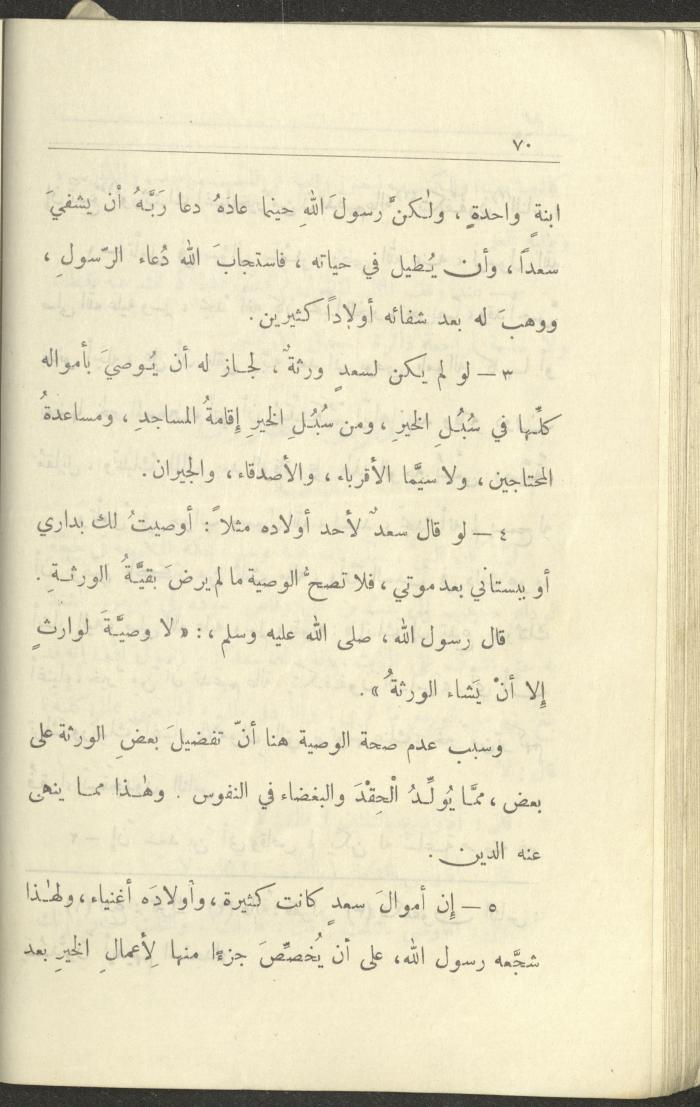 ٧٠
ابنةٍ واحدةٍ ، ولٰكنَّ رسولَ اللهِ حينما عادَهُ دعا رَبَّهُ أنْ يشفيَ
سعداً ، وأن يُطيل في حياته ، فاستجابَ الله دُعاء الرّسولِ ،
ووهبَ له بعد شفائه أولاداً كثيرين.
٣ – لو لم يكن لسعدٍ ورثةٌ ، لجاز له أن يُوصيَ بأمواله
كلِّها في سُبُلِ الخيرِ ، ومن سُبُلِ الخيرِ إقامةُ المساجدِ ، ومساعدةُ
المحتاجين ، ولا سيَّما الأقرباء ، والأصدقاء ، والجيران.
٤ – لو قال سعدٌ لأحد أولاده مثلاً : أوصيتُ لك بداري
أو ببستاني بعد موتي ، فلا تصحُّ الوصية ما لم يرضَ بقيَّةُ الورثةِ .
قال رسول الله ، صلى الله عليه وسلم ، : « لا وصيَّةَ لوارثٍ
إلا أنْ يَشاء الورثةُ ».
وسبب عدم صحة الوصية هنا أنّ تفضيلَ بعضِ الورثة على
بعض ، ممَّا يُولِّدُ الْحِقْدَ والبغضاء في النفوس . وهٰذا مما ينهى
عنه الدين.
٥ – إن أموالَ سعدٍ كانت كثيرة ، وأولادَه أغنياء ، ولهٰذا
شجَّعه رسول الله ، على أن يُخصِّصَ جزءًا منها لِأعمالِ الخيرِ بعد